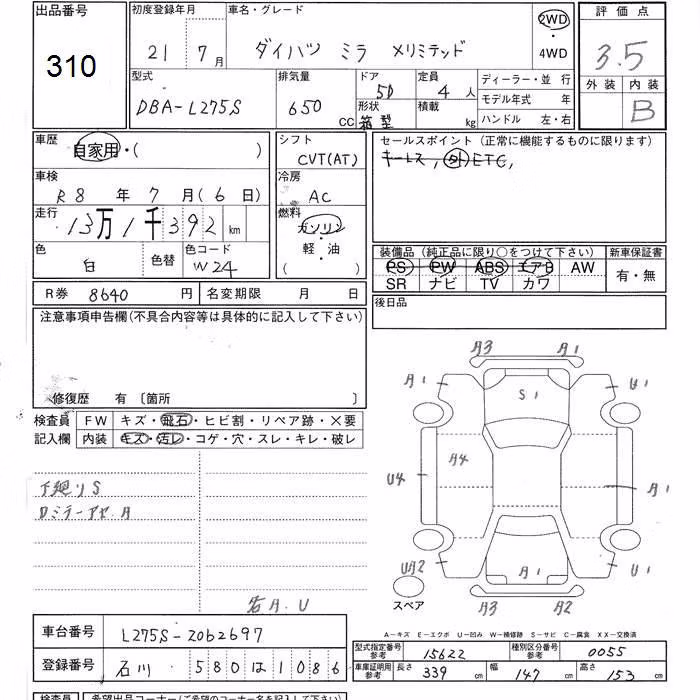 出品番号
310
初度登録年月
21 7月
車名・グレード
ダイハツ ミラ メリミテッド
2WD
・
4WD
評価点
3.5
外装 内装
B
型式
DBA-L275S
排気量
650
CC
ドア
5D
形状
箱型
定員
4 人
積載
kg
ディーラー・並行
モデル年式 年
ハンドル 左・右
車歴
自家用・( )
車検
R8 年 7 月(6 日)
走行
13万1千392 km
色
白
色替
色コード
W24
シフト
CVT(AT)
冷房
AC
燃料
ガソリン
軽・油
( )
セールスポイント(正常に機能するものに限ります)
キーレス, 外ETC,
装備品(純正品に限り○をつけて下さい)
PS PW ABS エアB AW
SR ナビ TV カワ
新車保証書
有・無
R券 8640 円
名変期限 月 日
後日品
注意事項申告欄(不具合内容等は具体的に記入して下さい)
修復歴 有 〔箇所 〕
検査員
記入欄
FW キズ・飛石・ヒビ割・リペア跡・×要
内装 キズ・汚レ・コゲ・穴・スレ・キレ・破レ
下廻りS
Dミラーアセ.A
各A.U
A3 A1
A1 U1
S1
A4
U4
A1
UA2
A1
U1
A3 A2
スペア
A-キズ E-エクボ U-凹み W-補修跡 S-サビ C-腐食 XX-交換済
車台番号
L275S-2062697
登録番号
石川 580は1086
型式指定番号
参考
15622
種別区分番号
参考
0055
車庫証明用
参考
長さ 339 cm
幅 147 cm
高さ 153 cm
検査員 希望出品コーナー(ご希望のコーナー名を記入して下さい)